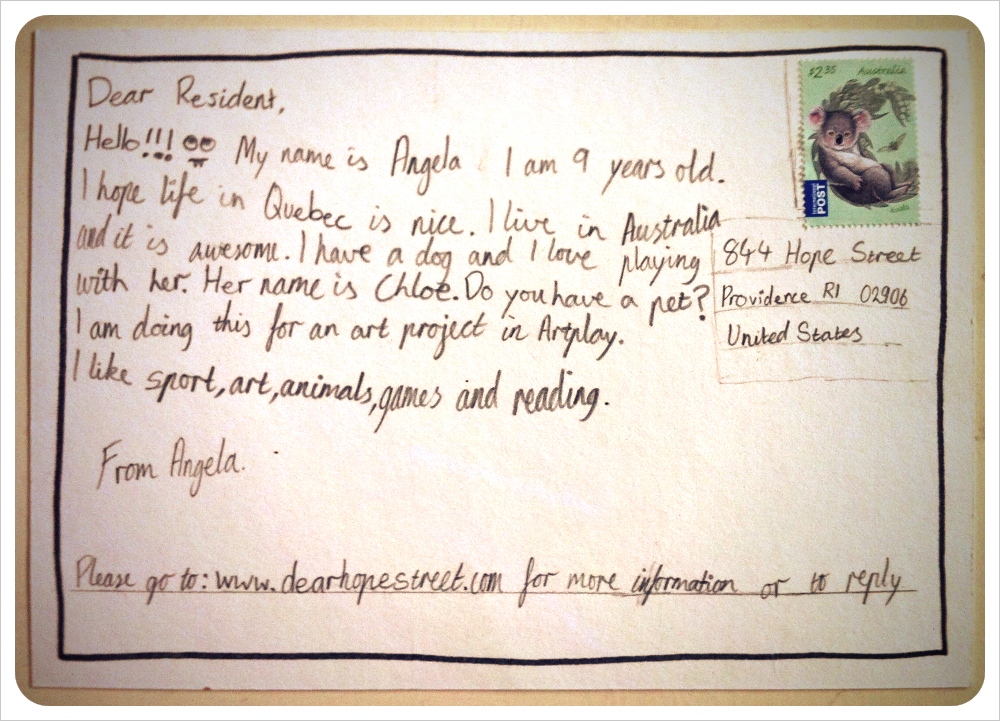 Dear Resident,
Hello!!! My name is Angela. I am 9 years old.
I hope life in Quebec is nice. I live in Australia
and it is awesome. I have a dog and I love playing
with her. Her name is Chloe. Do you have a pet?
I am doing this for an art project in Artplay.
I like sport, art, animals, games and reading.
From Angela.
Please go to: www.dearhopestreet.com for more information or to reply
$2.35 Australia
INTERNATIONAL POST
Koala
844 Hope Street
Providence RI 02906
United States